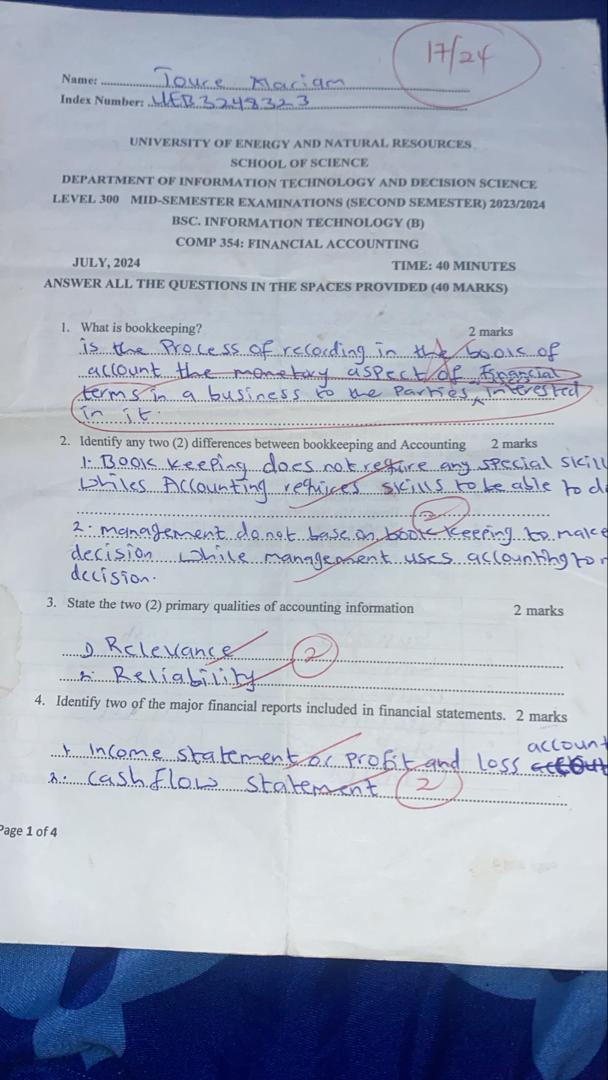 17/24
Name: Toure Mariam
Index Number: UEB3248323
UNIVERSITY OF ENERGY AND NATURAL RESOURCES
SCHOOL OF SCIENCE
DEPARTMENT OF INFORMATION TECHNOLOGY AND DECISION SCIENCE
LEVEL 300 MID-SEMESTER EXAMINATIONS (SECOND SEMESTER) 2023/2024
BSC. INFORMATION TECHNOLOGY (B)
COMP 354: FINANCIAL ACCOUNTING
JULY, 2024 TIME: 40 MINUTES
ANSWER ALL THE QUESTIONS IN THE SPACES PROVIDED (40 MARKS)
1. What is bookkeeping? 2 marks
is the Process of recording in the book of
account the monetary aspect of Financial
terms in a business to the Parties Interested
in it.
2. Identify any two (2) differences between bookkeeping and Accounting 2 marks
1. Book keeping does not require any special skill
whiles Accounting requires skills to be able to d
2
2. management do not base on book keeping to make
decision while management uses accounting to m
decision.
3. State the two (2) primary qualities of accounting information 2 marks
1) Relevance 2
2. Reliability
4. Identify two of the major financial reports included in financial statements. 2 marks
1. Income statement or profit and loss account
2. Cashflow statement 2
Page 1 of 4